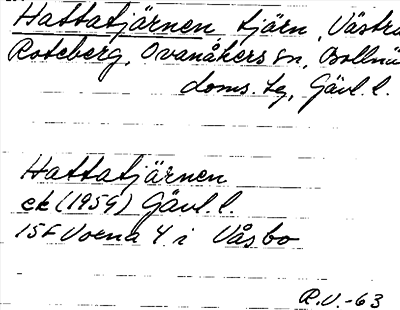 Hattatjärnen, tjärn, Västra
Roteberg, Ovanåkers sn, Bollnä
doms. lg, Gävl. l.
Hattatjärnen
ek (1959) Gävl. l.
15F Voxna 4 i Våsbo
R.V.-63